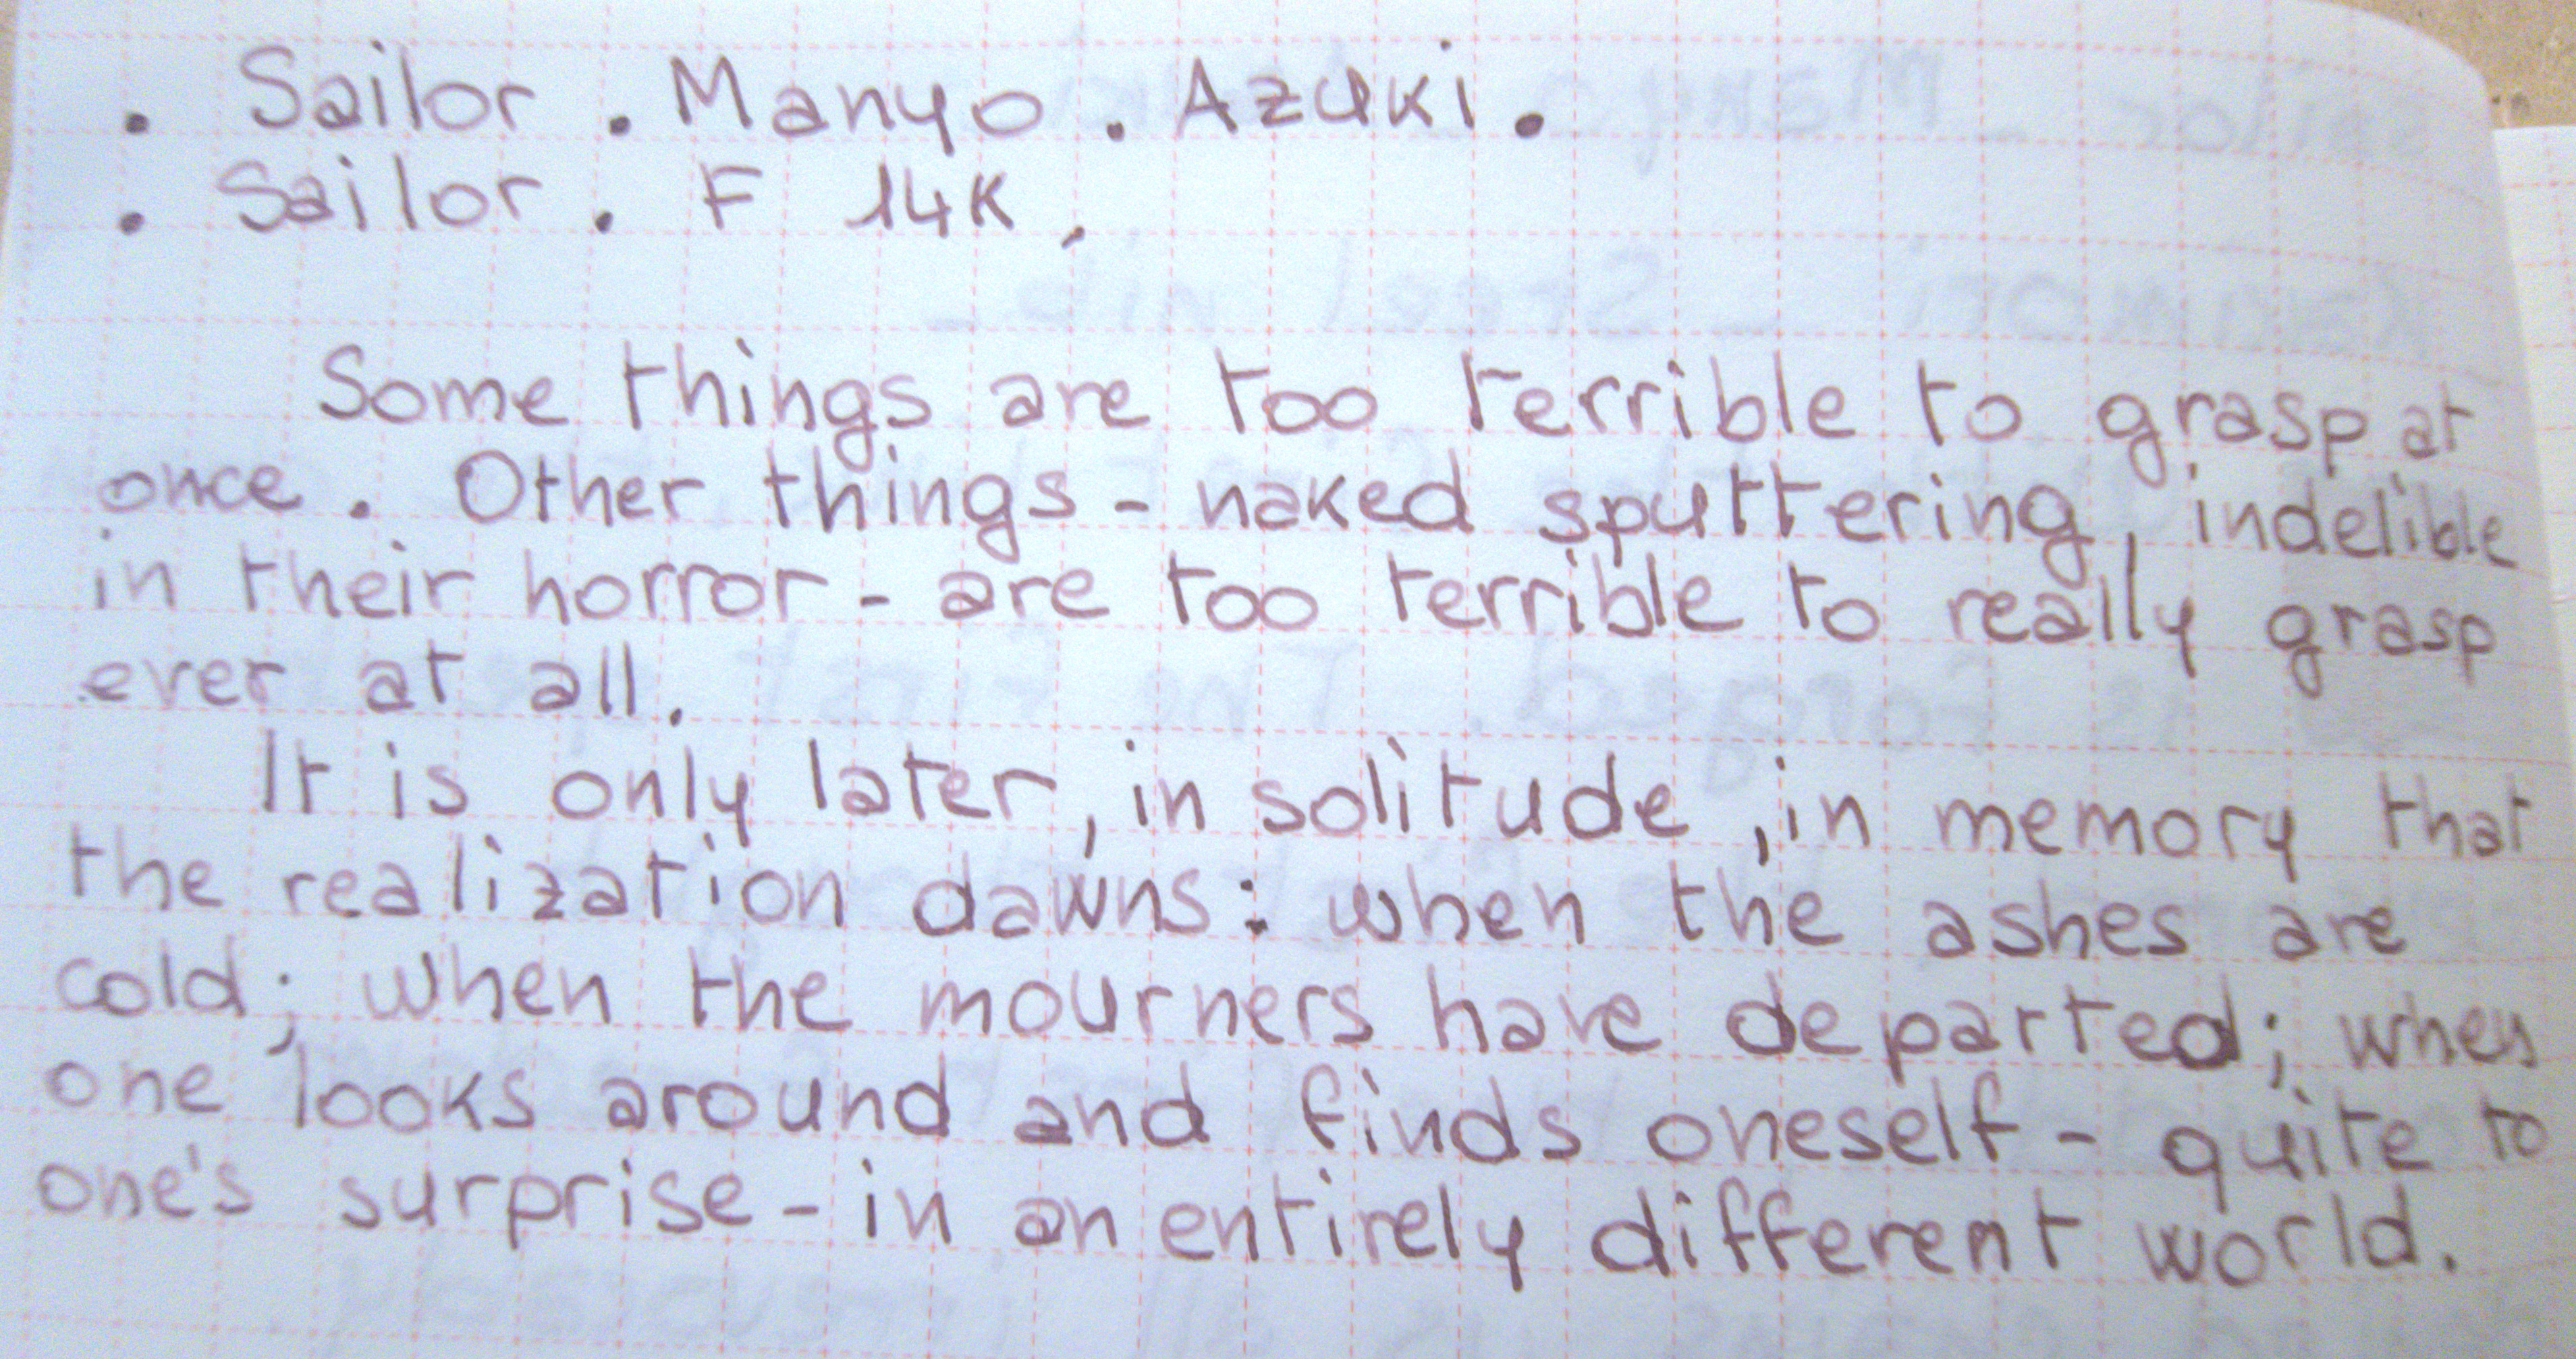 . Sailor . Manyo . Azuki .
. Sailor . F 14K,
Some things are too terrible to grasp at
once. Other things - naked sputtering, indelible
in their horror - are too terrible to really grasp
ever at all.
It is only later, in solitude, in memory that
the realization dawns: when the ashes are
cold; when the mourners have departed; when
one looks around and finds oneself - quite to
one's surprise - in an entirely different world.